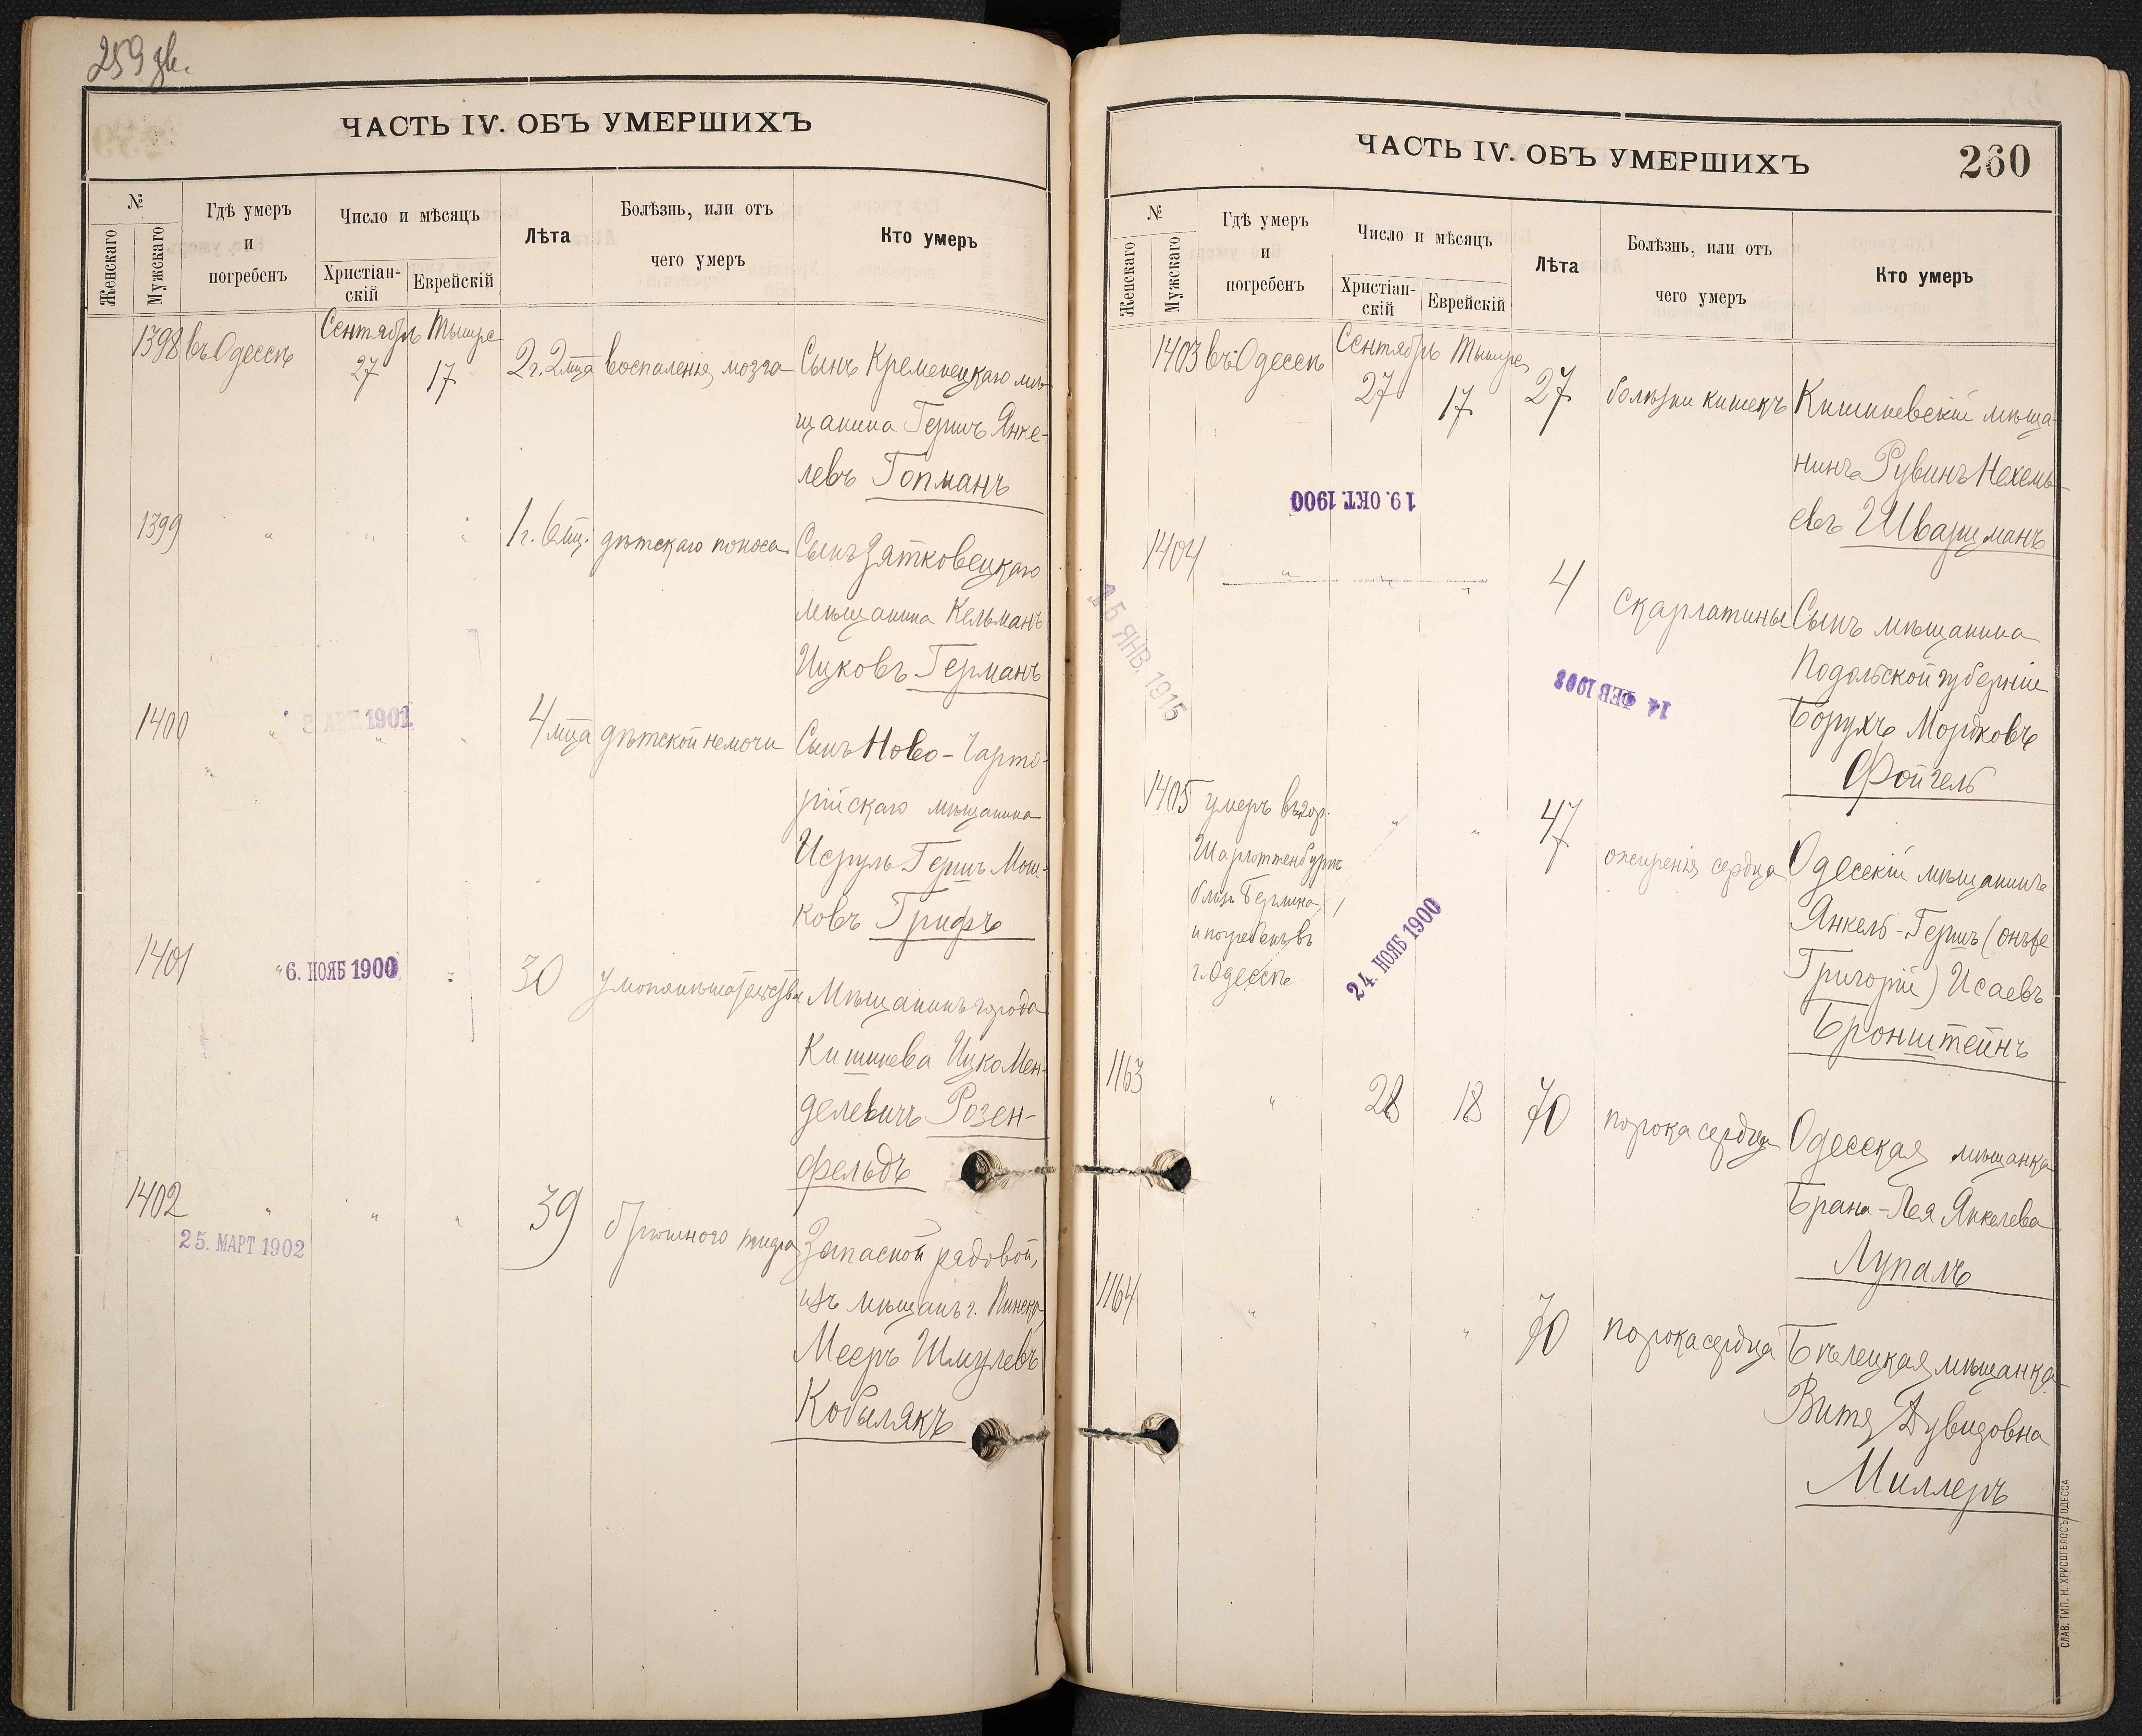 259 зв.
ЧАСТЬ IV. ОБЪ УМЕРШИХЪ
№
Женскаго
Мужскаго
Гдѣ умеръ
и
погребенъ
Число и мѣсяцъ
Христіан-
скій
Еврейскій
Лѣта
Болѣзнь, или отъ
чего умеръ
Кто умеръ
1398 въ Одессѣ Сентябрь 27 Тышре 17 2 г. 2 мца воспаленія мозга Сынъ Кременецкаго мѣ-
щанина Гершъ Янке-
левъ Гопманъ
1399 " " " 1 г. 6 мц. дѣтскаго поноса Сынъ Зятковецкаго
мѣщанина Кельманъ
Ицковъ Германъ
1400 " " " 4 мца дѣтской немочи Сынъ Ново-Чарто-
рійскаго мѣщанина
Исруль Гершъ Мош-
ковъ Грифъ
1901
1401 " " 30 умопомѣшательства Мѣщанинъ города
Кишинева Ицко Мен-
делевичъ Розен-
фельдъ
6. НОЯБ 1900
1402 " " " 39 брюшного тифа Запасной рядовой,
изъ мѣщанъ г. Пинска,
Мееръ Шмулевъ
Кобылякъ
25. МАРТ 1902
ЧАСТЬ IV. ОБЪ УМЕРШИХЪ
260
№
Женскаго
Мужскаго
Гдѣ умеръ
и
погребенъ
Число и мѣсяцъ
Христіан-
скій
Еврейскій
Лѣта
Болѣзнь, или отъ
чего умеръ
Кто умеръ
1403 въ Одессѣ Сентябрь 27 Тышре 17 27 болѣзни кишекъ Кишиневскій мѣща-
нинъ Рувинъ Нехемь-
евъ Шварцманъ
19. ОКТ. 1900
1404 " " " 4 скарлатины Сынъ мѣщанина
Подольской губерніи
Борухъ Мордковъ
Фойгель
15 ЯНВ. 1915
14 ФЕВ 1903
1405 умеръ въ гор.
Шарлоттенбургѣ
близь Берлина,
и погребенъ въ
г. Одессѣ
" " 47 ожиренія сердца Одесскій мѣщанинъ
Янкель-Гершъ (онъ же
Григорій) Исаевъ
Бронштейнъ
24. НОЯБ 1900
1163 " 28 18 70 порока сердца Одесская мѣщанка
Брана-Лея Янкелева
Лупалъ
1164 " " " 70 порока сердца Бѣлецкая мѣщанка
Витя Дувидовна
Миллеръ
СЛАВ. ТИП. Н. ХРИСОГЕЛОСЪ, ОДЕССА